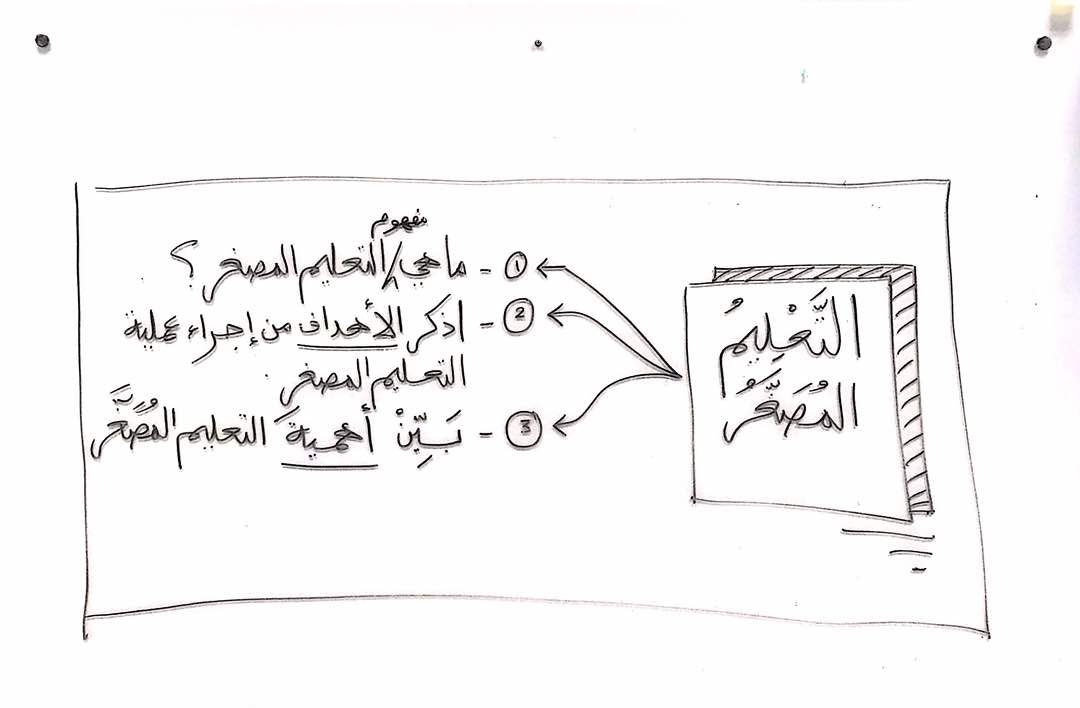 التَّعْلِيمُ
المُصَغَّرُ
① - ما هي مفهوم التعليم المصغر ؟
② - اذكر الأهداف من إجراء عملية
التعليم المصغر.
③ - بَيِّنْ أهميةَ التعليم المُصَغَّر